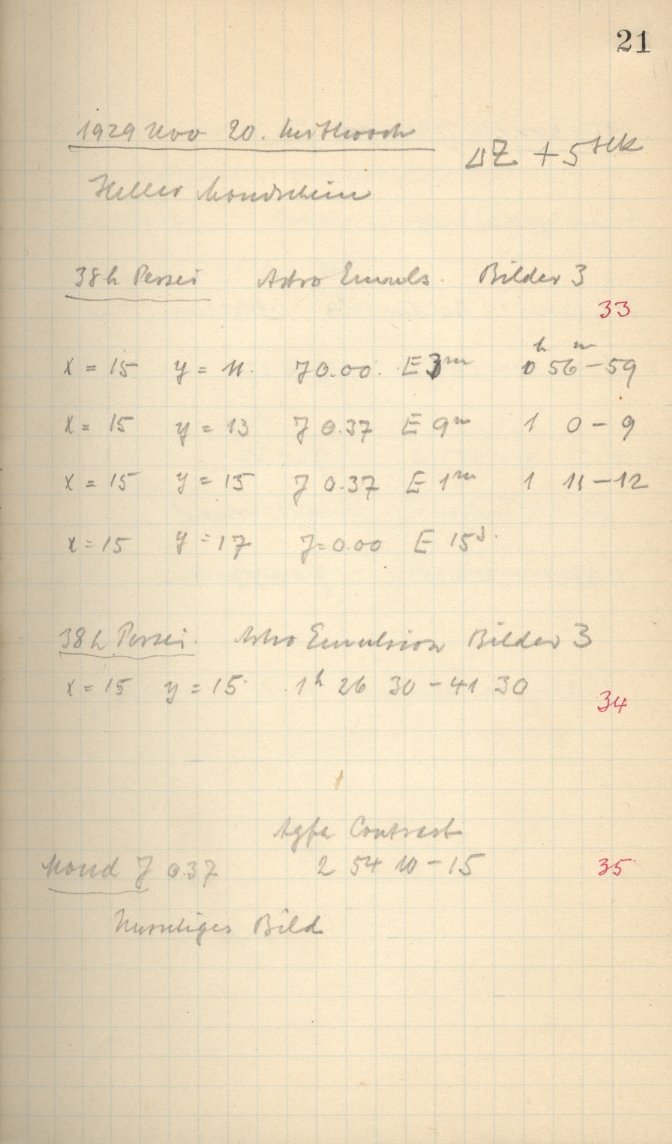 21
1929 Nov 20. Mittwoch
ΔZ + 5 sek
Heller Mondschein
38 h Persei Astro Emuls. Bilder 3
33
x = 15 y = 11. J 0.00. E 3m 0h 56m - 59
x = 15 y = 13 J 0.37 E 9m 1 0 - 9
x = 15 y = 15 J 0.37 E 1m 1 11 - 12
x = 15 y = 17 J = 0.00 E 15s.
38 h Persei. Astro Emulsion Bilder 3
x = 15 y = 15. 1h 26 30 - 41 30
34
Agfa Contrast
Mond J 0.37 2 54 10 - 15 35
Bild